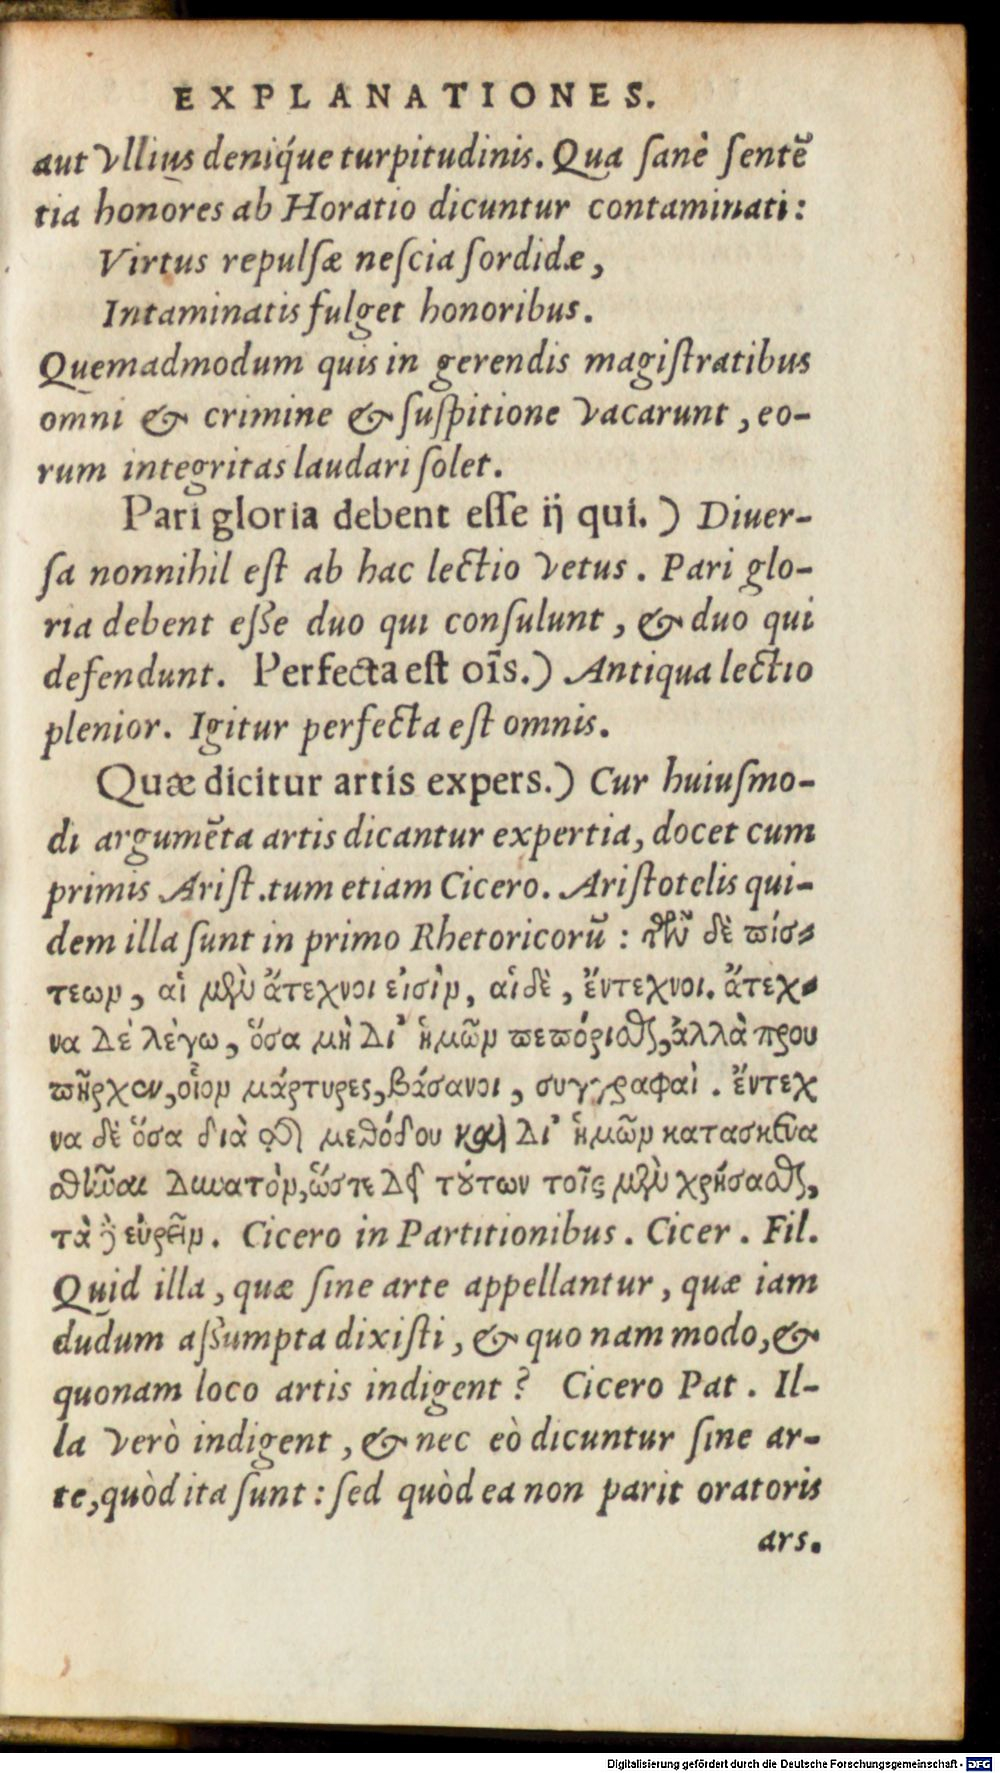 EXPLANATIONES.
aut vllius deniq́ue turpitudinis. Qua ſanè ſentẽ
tia honores ab Horatio dicuntur contaminati:
Virtus repulſæ neſcia ſordidæ,
Intaminatis fulget honoribus.
Quemadmodum quis in gerendis magiſtratibus
omni & crimine & ſuſpitione vacarunt, eo-
rum integritas laudari ſolet.
Pari gloria debent eſſe ij qui.) Diuer-
ſa nonnihil eſt ab hac lectio vetus. Pari glo-
ria debent eſſe duo qui conſulunt, & duo qui
defendunt. Perfecta eſt oĩs.) Antiqua lectio
plenior. Igitur perfecta eſt omnis.
Quæ dicitur artis expers.) Cur huiuſmo-
di argumẽta artis dicantur expertia, docet cum
primis Ariſt. tum etiam Cicero. Ariſtotelis qui-
dem illa ſunt in primo Rhetoricorũ: τῶν δὲ πίσ-
τεων, αἱ μὲν ἄτεχνοι εἰσὶν, αἱ δὲ, ἔντεχνοι. ἄτεχ-
να δὲ λέγω, ὅσα μὴ δι’ ἡμῶν πεπόρισθαι, ἀλλὰ πρου
πῆρχον, οἷον μάρτυρες, βάσανοι, συγγραφαὶ. ἔντεχ
να δὲ ὅσα διὰ τῆς μεθόδου καὶ δι’ ἡμῶν κατασκευα
σθῆναι δυνατὸν, ὥστε δεῖ τούτων τοῖς μὲν χρήσασθαι,
τὰ δὲ εὑρεῖν. Cicero in Partitionibus. Cicer. Fil.
Quid illa, quæ ſine arte appellantur, quæ iam
dudum aſſumpta dixiſti, & quo nam modo, &
quonam loco artis indigent? Cicero Pat. Il-
la verò indigent, & nec eò dicuntur ſine ar-
te, quòd ita ſunt: ſed quòd ea non parit oratoris
ars.
Digitalisierung gefördert durch die Deutsche Forschungsgemeinschaft - DFG